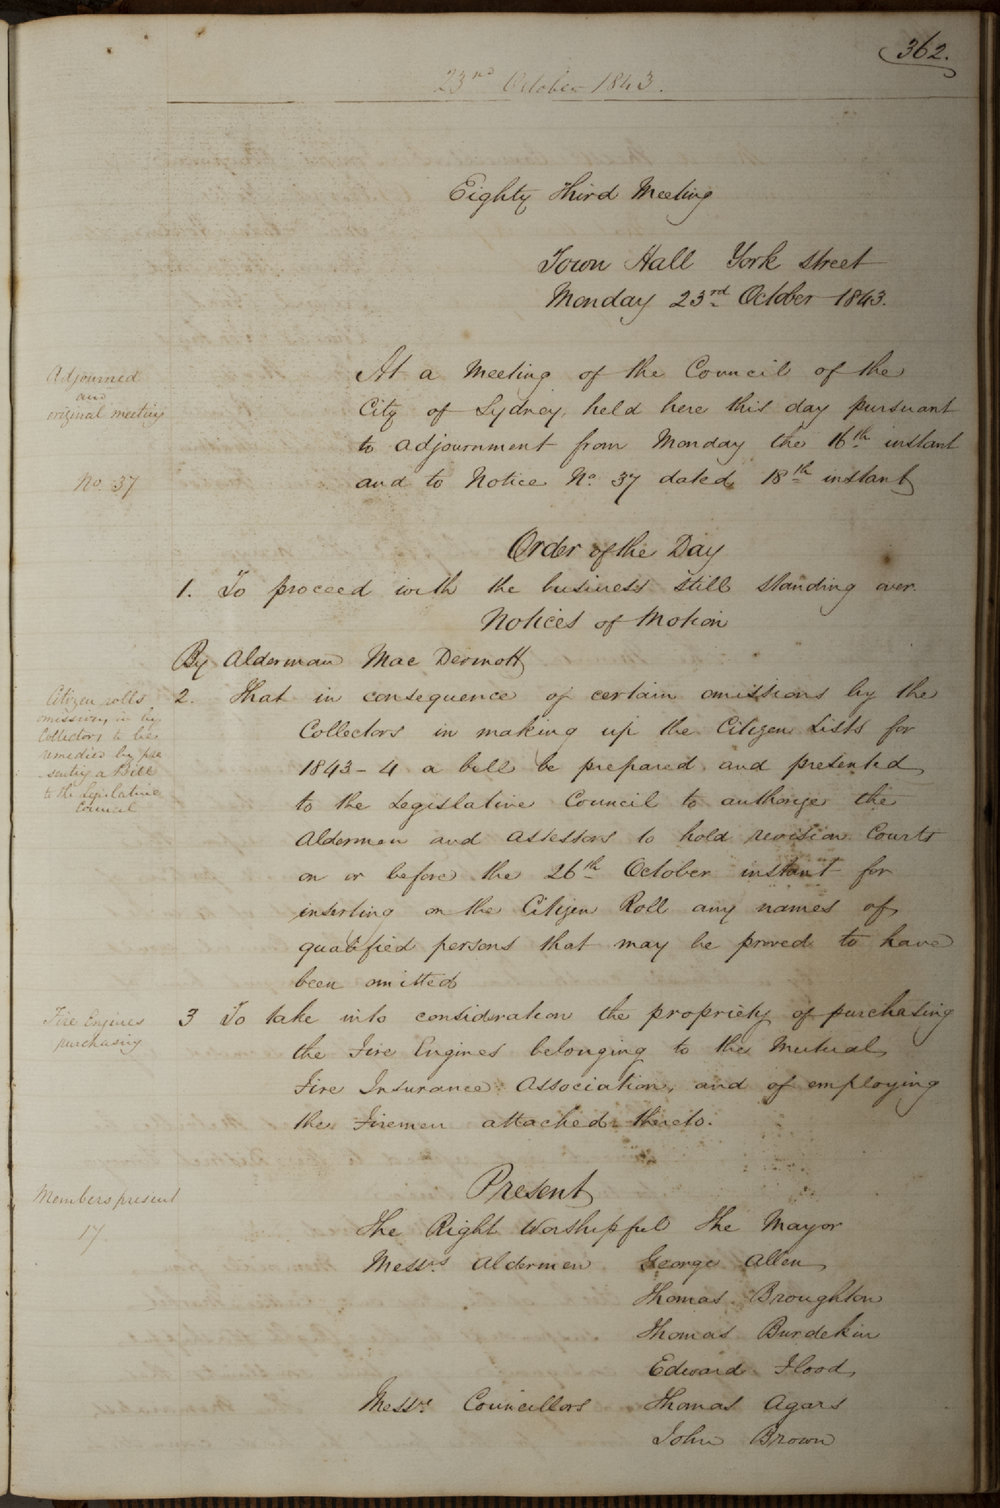 362.
23rd October 1843.
Eighty third Meeting
Town Hall York street
Monday 23rd October 1843.
Adjourned
and
original meeting
No. 37
At a Meeting of the Council of the
City of Sydney, held here this day pursuant
to adjournment from Monday the 16th instant
and to Notice No. 37 dated 18th instant
Order of the Day
1. To proceed with the business still standing over.
Notices of Motion
By Alderman Mac Dermott
Citizen rolls
omissions in by
Collectors to be
remedied by pre
-senting a Bill
to the legislative
Council
2. That in consequence of certain omissions by the
Collectors in making up the Citizen Lists for
1843-4 a bill be prepared and presented
to the Legislative Council to authorize the
Aldermen and assessors to hold revision Courts
on or before the 26th October instant for
inserting on the Citizen Roll any names of
qualified persons that may be proved to have
been omitted
Fire Engines
purchasing
3 To take into consideration the propriety of purchasing
the Fire Engines belonging to the Mutual
Fire Insurance Association, and of employing
the Firemen attached thereto.
Members present
17
Present
The Right Worshipful The Mayor
Messrs. Aldermen George Allen
Thomas Broughton
Thomas Burdekin
Edward Flood
Messrs. Councillors Thomas Agars
John Brown